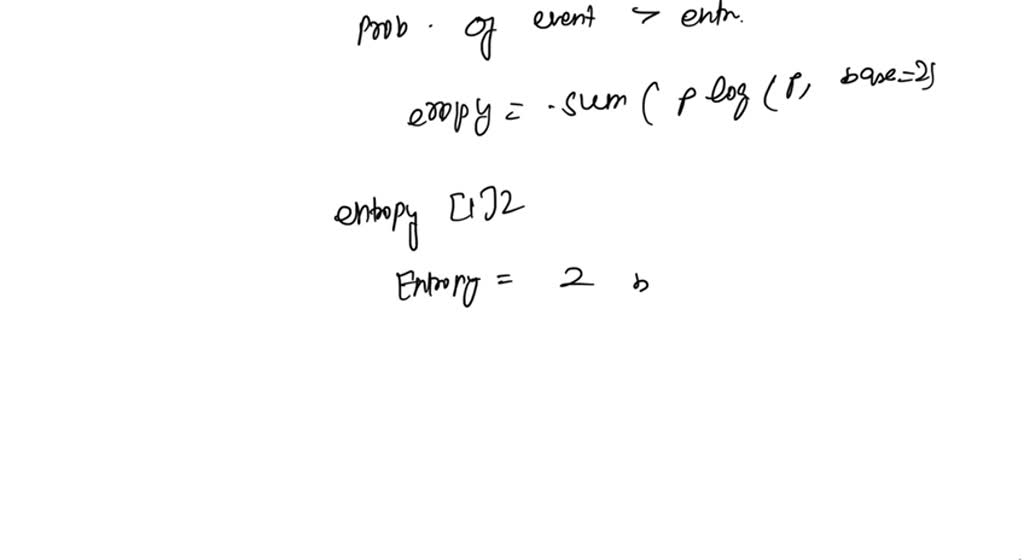 prob. of event > entr.
eropy = -sum ( p log (P, base=2)
entropy [1]2
Entropy = 2 b